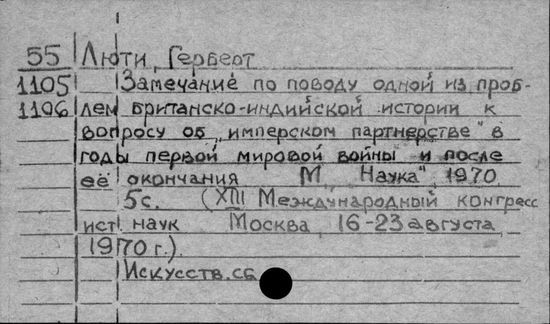 55 Люти, Герберт
1105 Замечание по поводу одной из проб-
1106 лем британско-индийской истории к
вопросу об „имперском партнерстве" в
годы первой мировой войны и после
её окончания М „Наука", 1970
5с. (XIII Международный конгресс
ист наук Москва, 16-23 августа
1970 г.).
Искусств. св